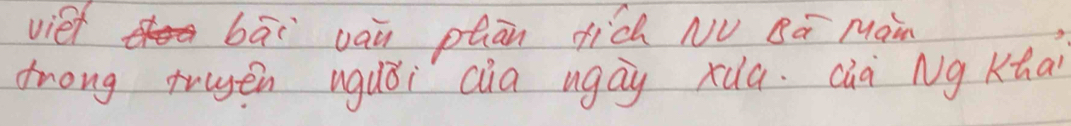 viết bài văn phân tích NV Bà Mằn
trong truyện người của ngày xưa. của Ng Khải